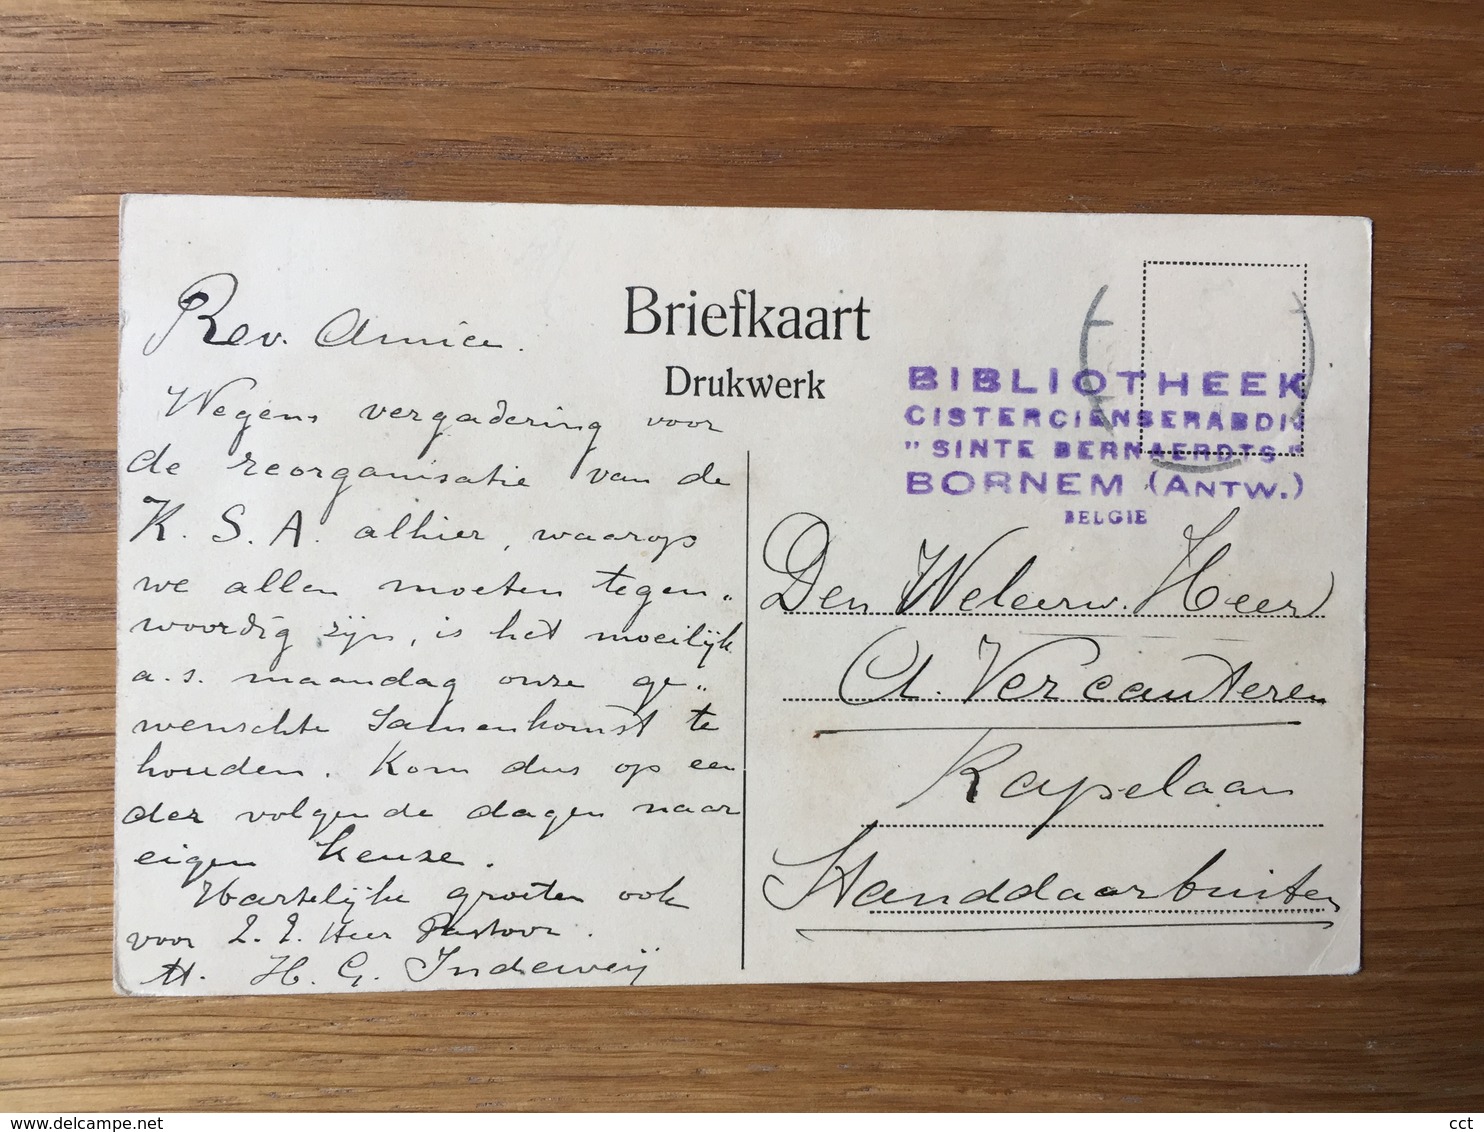 Briefkaart
Drukwerk
BIBLIOTHEEK
CISTERCIENSERABDIJ
"SINTE BERNAERDTS"
BORNEM (ANTW.)
BELGIE
Rev. Amice.
Wegens vergadering voor
de reorganisatie van de
K. S. A. alhier, waarop
we allen moeten tegen„
woordig zijn, is het moeilijk
a.s. maandag onze ge„
wenschte samenkomst te
houden. Kom dus op een
der volgende dagen naar
eigen keuze.
Hartelijke groeten ook
voor Z. E. Heer Pastoor.
H. G. Indeweij
Den Weleerw. Heer
A. Vercauteren
Kapelaan
Standdaarbuiten
cct